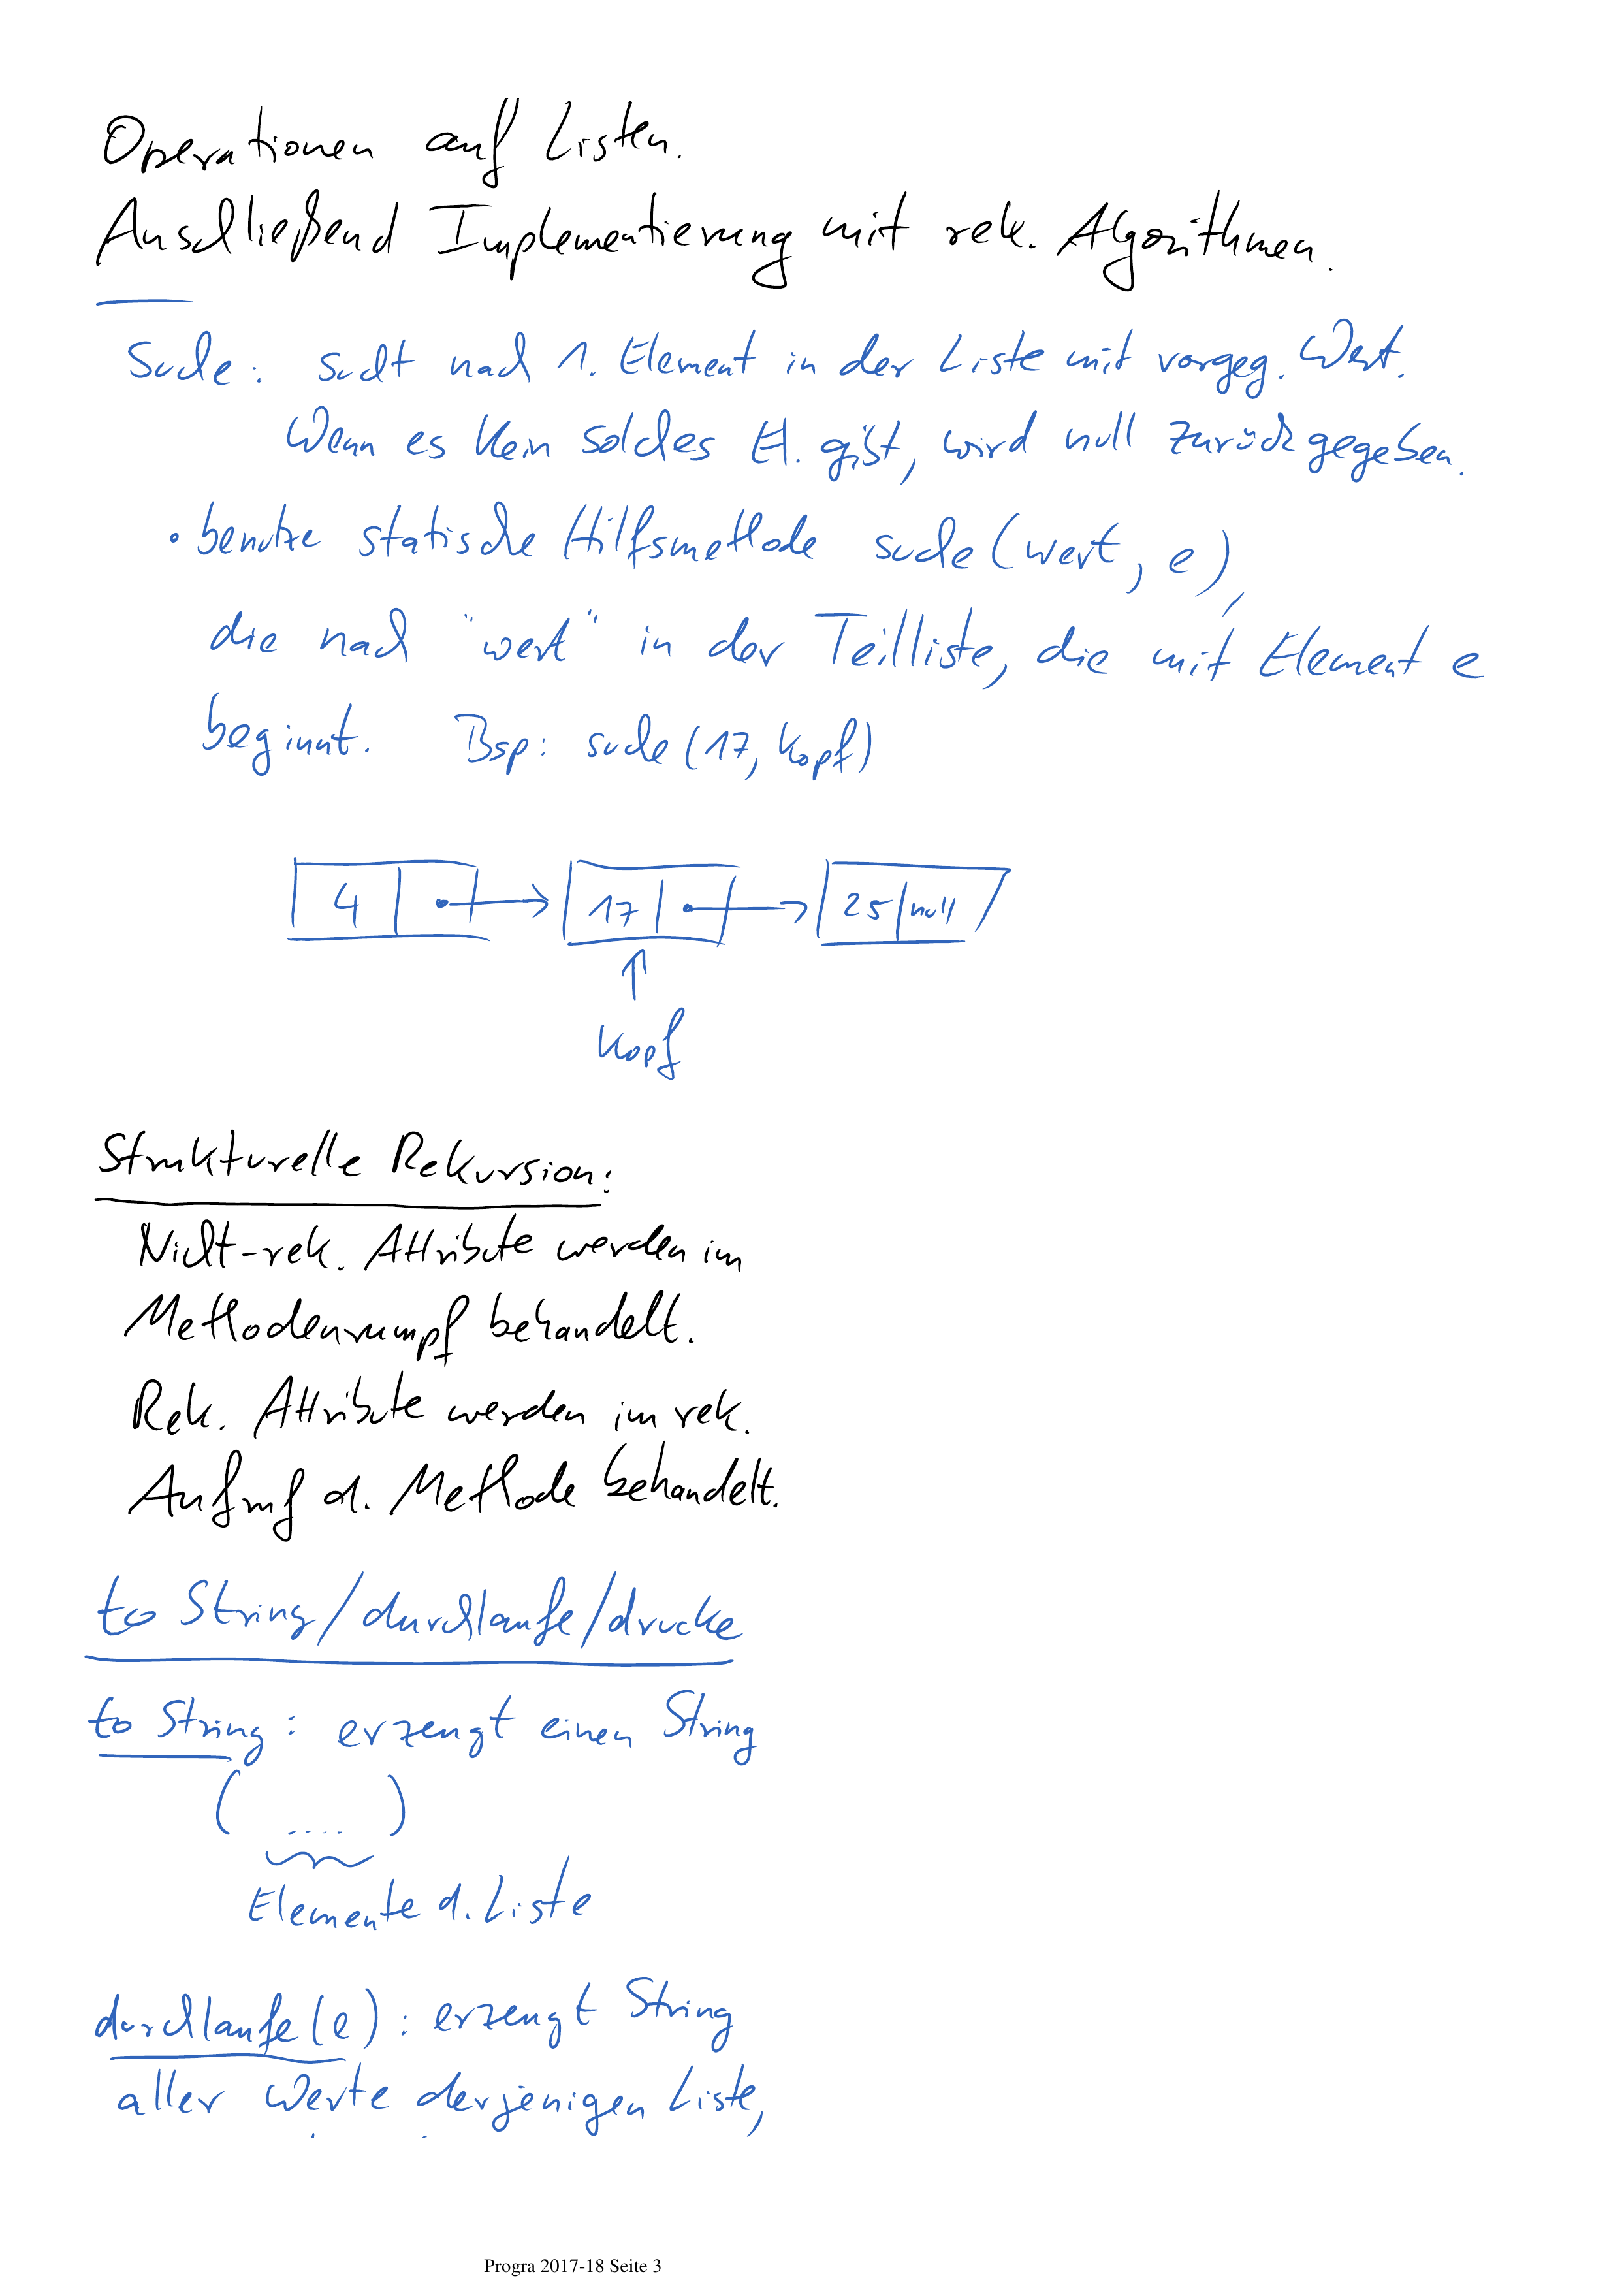 Operationen auf Listen.
Anschließend Implementierung mit rek. Algorithmen.
Suche: sucht nach 1. Element in der Liste mit vorgeg. Wert.
Wenn es kein solches El. gibt, wird null zurückgegeben.
• benutze statische Hilfsmethode suche(wert, e),
die nach "wert" in der Teilliste, die mit Element e
beginnt. Bsp: suche(17, Kopf)
4 17 25 null
Kopf
Strukturelle Rekursion:
Nicht-rek. Attribute werden im
Methodenrumpf behandelt.
Rek. Attribute werden im rek.
Aufruf d. Methode behandelt.
toString/durchlaufe/drucke
toString: erzeugt einen String
( .... )
Elemente d. Liste
durchlaufe(e): erzeugt String
aller Werte derjenigen Liste,
Progra 2017-18 Seite 3